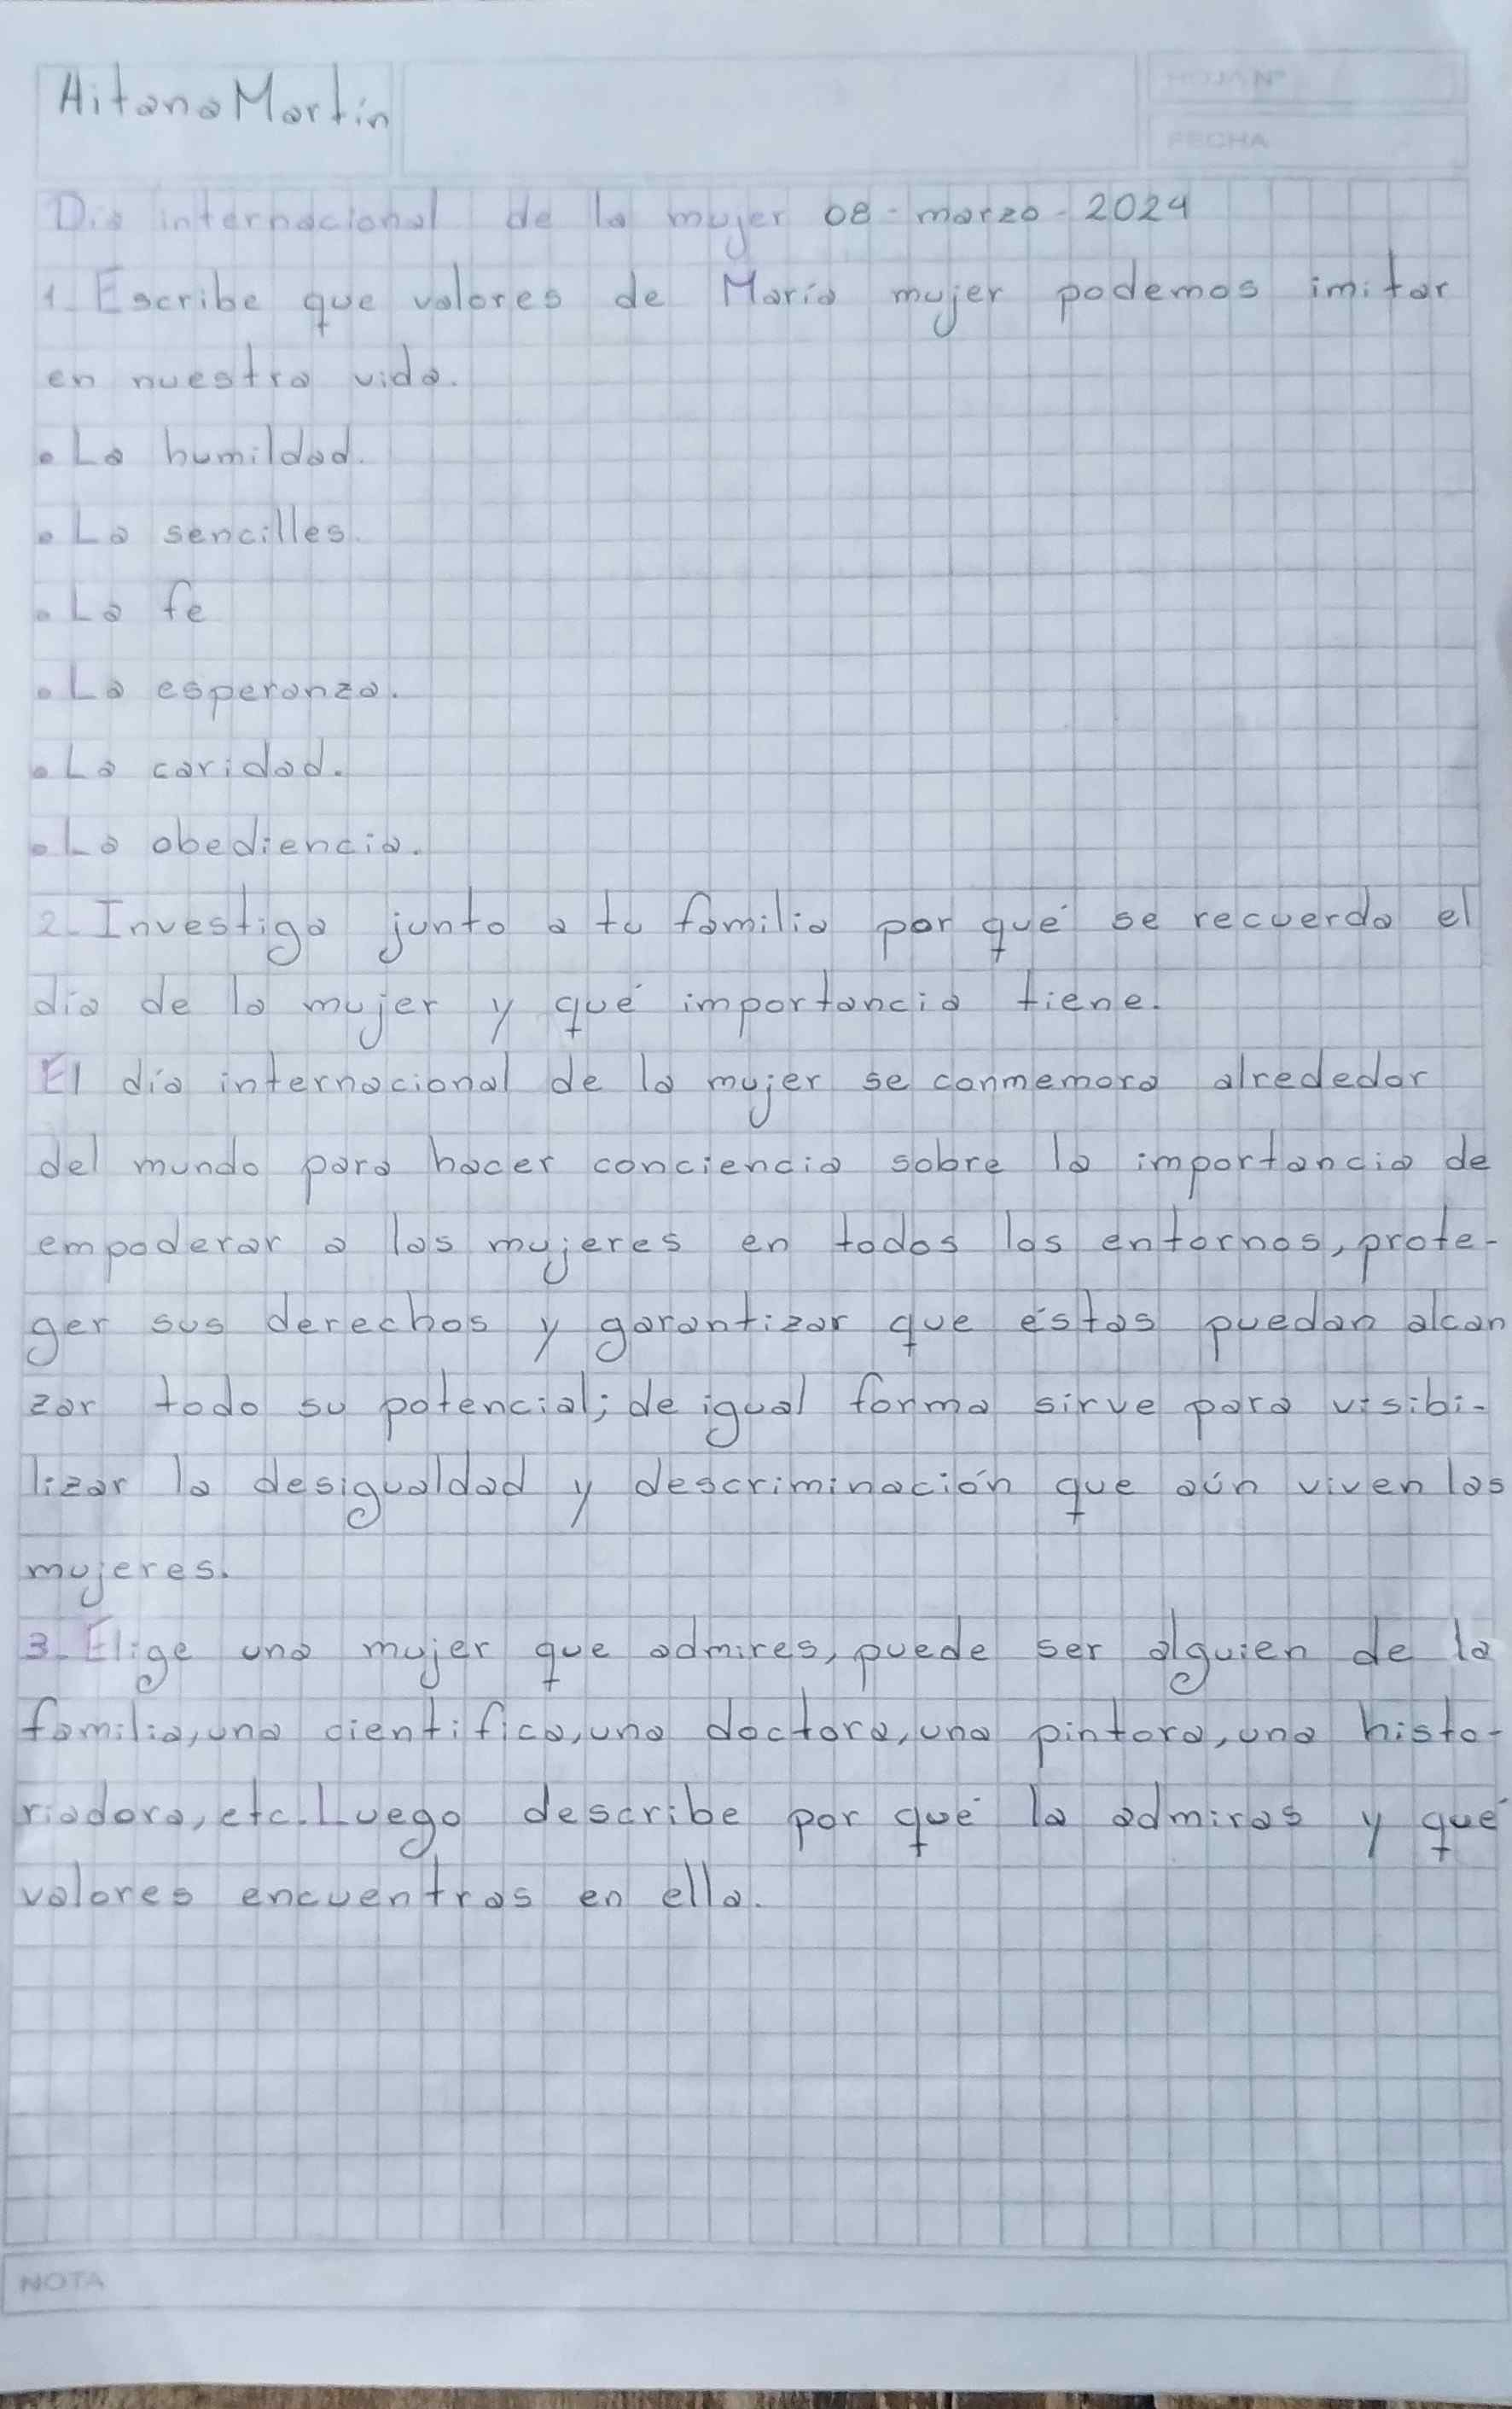 Aitana Martin
HOJA N°
FECHA
Dia internacional de la mujer 08-marzo-2024
1-Escribe que valores de María mujer podemos imitar
en nuestra vida.
• La humildad.
• La sencilles.
• La fe
• La esperanza.
• La caridad.
• La obediencia.
2-Investiga junto a tu familia por qué se recuerda el
día de la mujer y qué importancia tiene.
El día internacional de la mujer se conmemora alrededor
del mundo para hacer conciencia sobre la importancia de
empoderar a las mujeres en todos los entornos, prote-
ger sus derechos y garantizar que éstas puedan alcan
zar todo su potencial; de igual forma sirve para visibi-
lizar la desigualdad y descriminación que aún viven las
mujeres.
3-Elige una mujer que admires, puede ser alguien de la
familia, una cientifica, una doctora, una pintora, una histo-
riadora, etc. Luego describe por qué la admiras y qué
valores encuentras en ella.
NOTA